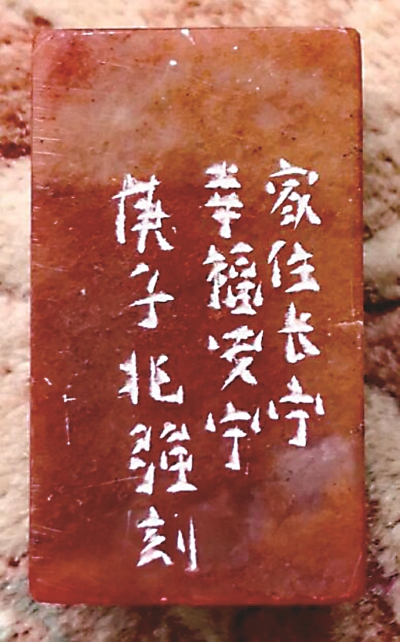 家住长宁
幸福安宁
庚子兆強刻